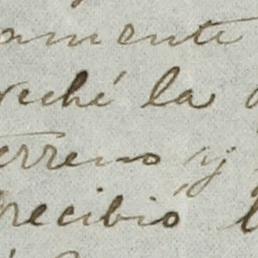 amente
veché la
terreno y
recibió